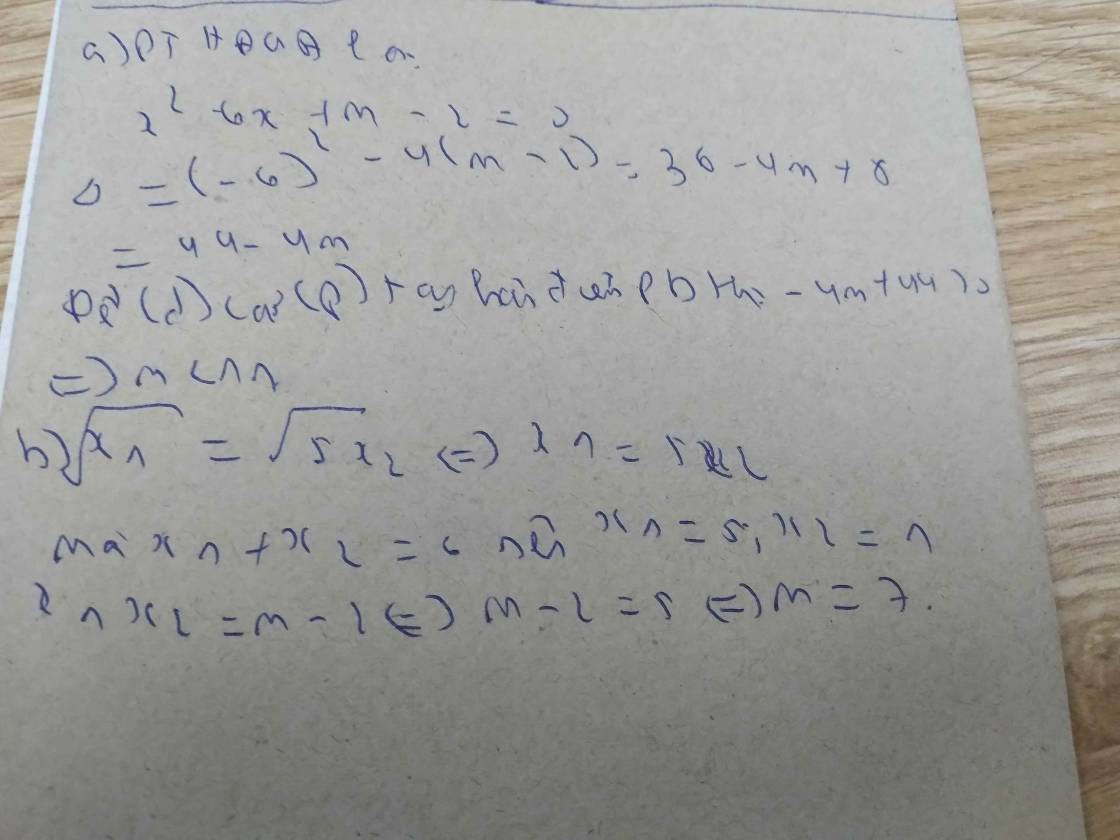 a) PT HĐGĐ là
x² - 6x + m - 2 = 0
Δ = (-6)² - 4(m - 2) = 36 - 4m + 8
= 44 - 4m
Để (d) cắt (P) tại hai điểm PB thì - 4m + 44 > 0
=> m < 11
b) √x1 = √5x2 <=> x1 = 5x2
mà x1 + x2 = 6 nên x1 = 5, x2 = 1
x1x2 = m - 2 <=> m - 2 = 5 <=> m = 7.